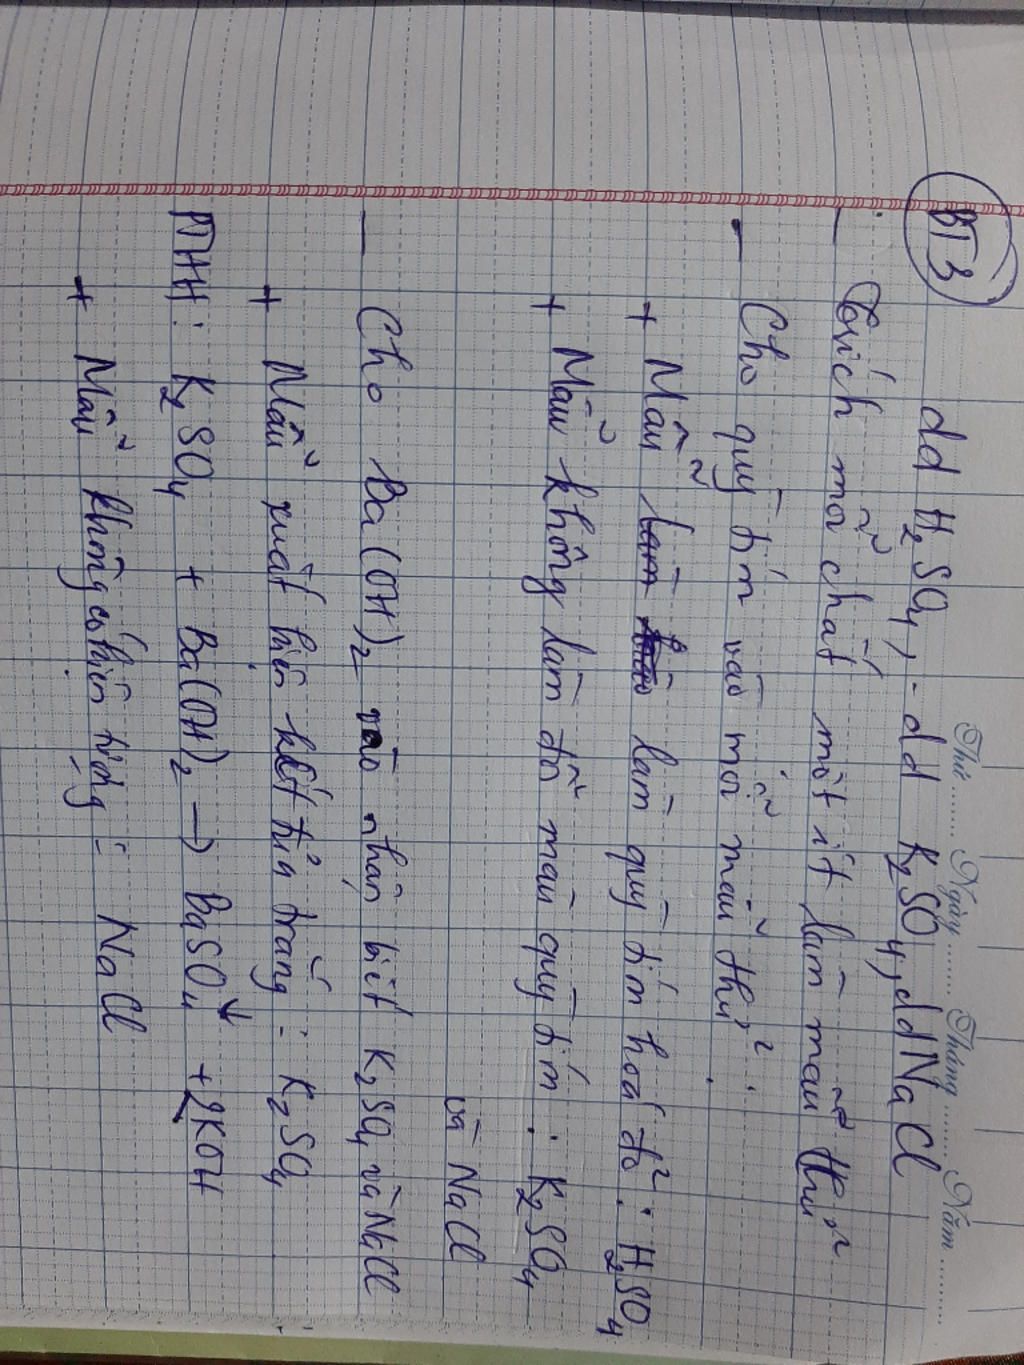 Thứ ........ Ngày ........ Tháng ........ Năm ........
BT3 dd H2SO4, - dd K2SO4, dd NaCl
- Trích mỗi chất một ít làm mẫu thử
- Cho quỳ tím vào mỗi mẫu thử :
+ Mẫu làm quỳ tím hoá đỏ : H2SO4
+ Mẫu không làm đổi màu quỳ tím : K2SO4
và NaCl
- Cho Ba(OH)2 vào nhận biết K2SO4 và NaCl
+ Mẫu xuất hiện kết tủa trắng : K2SO4
PTHH : K2SO4 + Ba(OH)2 → BaSO4↓ + 2KOH
+ Mẫu không có hiện tượng : NaCl